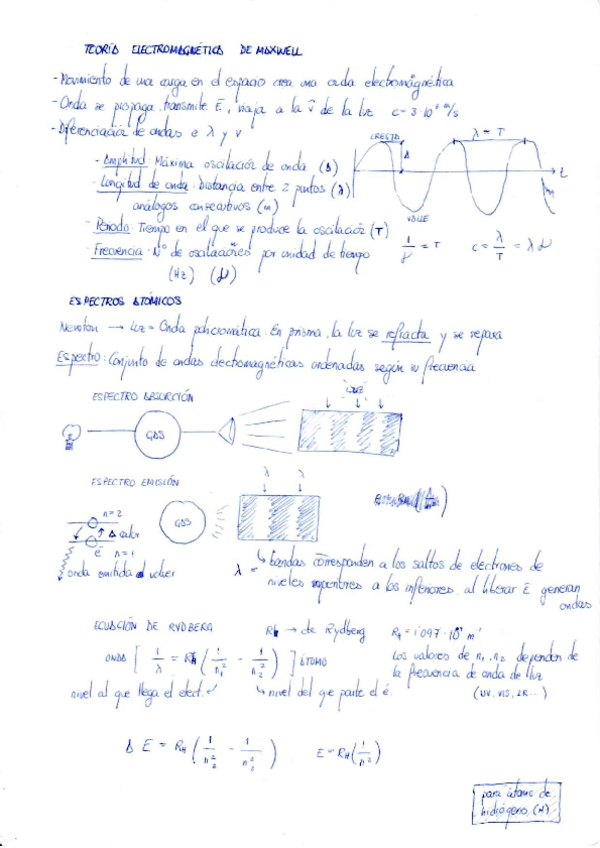 TEORÍA ELECTROMAGNÉTICA DE MAXWELL
- Movimiento de una carga en el espacio crea una onda electromagnética
- Onda se propaga, transmite E, viaja a la v de la luz c = 3·10⁸ m/s
- Diferenciación de ondas e λ y ν
- Amplitud: Máxima oscilación de onda (A)
- Longitud de onda: Distancia entre 2 puntos (λ)
análogos consecutivos (m)
- Periodo: Tiempo en el que se produce la oscilación (T)
- Frecuencia: Nº de oscilaciones por unidad de tiempo
(Hz) (ν)
CRESTA
λ = T
A
t
VALLE
1/ν = T c = λ/T = λν
ESPECTROS ATÓMICOS
Newton → Luz = Onda policromática. En prisma, la luz se refracta y se separa
Espectro: Conjunto de ondas electromagnéticas ordenadas según su frecuencia
ESPECTRO ABSORCIÓN
LUZ
GAS
ESPECTRO EMISIÓN
λ λ
n=2
GAS
Δ calor
é n=1
onda emitida al volver
λ = ↳ bandas corresponden a los saltos de electrones de
niveles superiores a los inferiores, al liberar E generan
ondas
ECUACIÓN DE RYDBERG
RH → cte Rydberg RH = 1'097·10⁷ m⁻¹
ONDA [ 1/λ = RH ( 1/n₁² - 1/n₂² ) ] ÁTOMO
Los valores de n₁, n₂ dependen de
la frecuencia de onda de luz
(UV, VIS, IR...)
nivel al que llega el elect. ↳ nivel del que parte el é.
Δ E = RH ( 1/n₂² - 1/n₂² ) E = RH ( 1/n² )
para átomo de
hidrógeno (H)